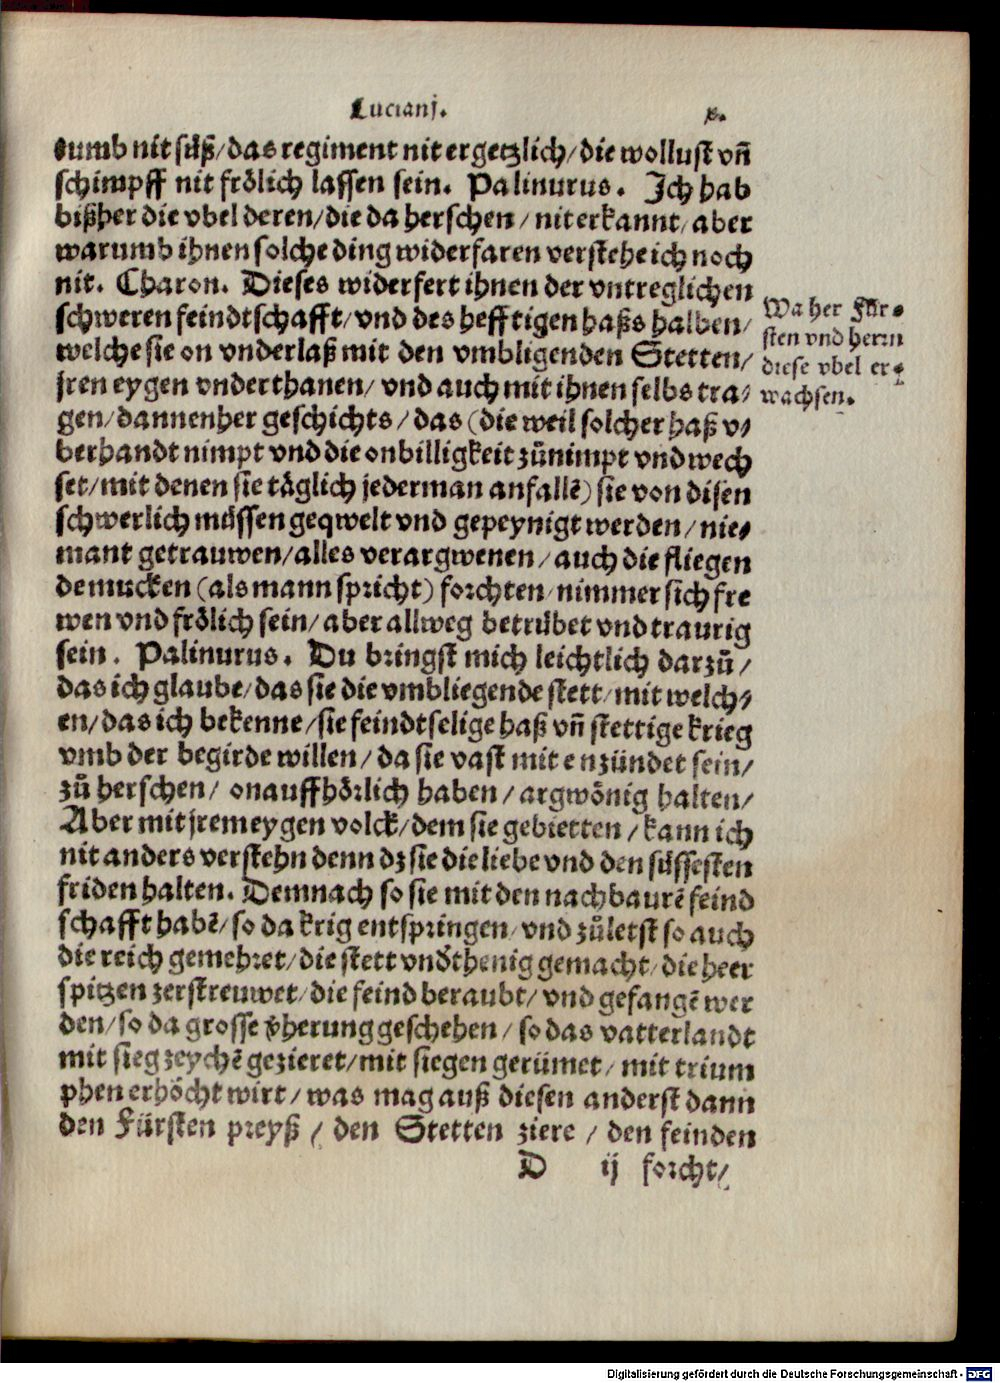 Luciani. x.
tumb nit süß/das regiment nit ergetzlich/die wollust vñ
schimpff nit frölich lassen sein. Palinurus. Ich hab
bißher die vbel deren/die da herschen/nit erkannt/aber
warumb ihnen solche ding widerfaren verstehe ich noch
nit. Charon. Dieses widerfert ihnen der vntreglichen
schweren feindtschafft/vnd des hefftigen haßs halben/
welche sie on vnderlaß mit den vmbligenden Stetten/
jren eygen vnderthanen/vnd auch mit ihnen selbs tra⸗
gen/dannenher geschichts/das (die weil solcher haß v⸗
berhandt nimpt vnd die onbilligkeit zůnimpt vnd wech
set/mit denen sie täglich jederman anfallē) sie von disen
schwerlich müssen geqwelt vnd gepeynigt werden/nie⸗
mant getrauwen/alles verargwenen/auch die fliegen
de mucken (als mann spricht) forchten/nimmer sich fre
wen vnd frölich sein/aber allweg betrübet vnd traurig
sein. Palinurus. Du bringst mich leichtlich darzů/
das ich glaube/das sie die vmbliegende stett/mit welch⸗
en/das ich bekenne/sie feindtselige haß vñ stettige krieg
vmb der begirde willen/da sie vast mit enzündet sein/
zů herschen/onauffhörlich haben/argwönig halten/
Aber mit jrem eygen volck/dem sie gebietten/kann ich
nit anders verstehn denn dz sie die liebe vnd den süssesten
friden halten. Demnach so sie mit den nachbaurē feind
schafft habē/so da krig entspringen/vnd zůletst so auch
die reich gemehret/die stett vnöthenig gemacht/die heer
spitzen zerstreuwet/die feind beraubt/vnd gefangē wer
den/so da grosse v̈herung geschehen/so das vatterlandt
mit sieg zeychē gezieret/mit siegen gerümet/mit trium
phen erhöcht wirt/was mag auß diesen anderst dann
den Fürsten preyß/den Stetten ziere/den feinden
D ij forcht/
Wa her Für⸗
sten vnd herrn
diese vbel er⸗
wachsen.
Digitalisierung gefördert durch die Deutsche Forschungsgemeinschaft - DFG